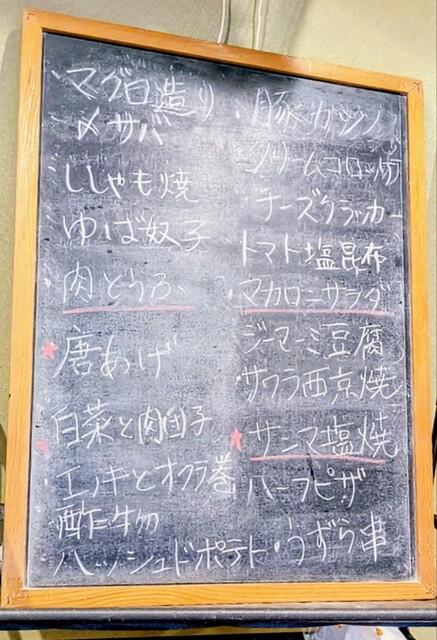 ・マグロ造り
〆サバ
ししゃも焼
ゆば奴
肉どうふ
唐あげ
白菜と肉団子
エノキとオクラ巻
酢牛もつ
ハッシュドポテト
・豚カツ
クリームコロッケ
チーズクラッカー
トマト塩昆布
マカロニサラダ
ジーマーミ豆腐
サワラ西京焼
サンマ塩焼
ハーフピザ
・うずら串